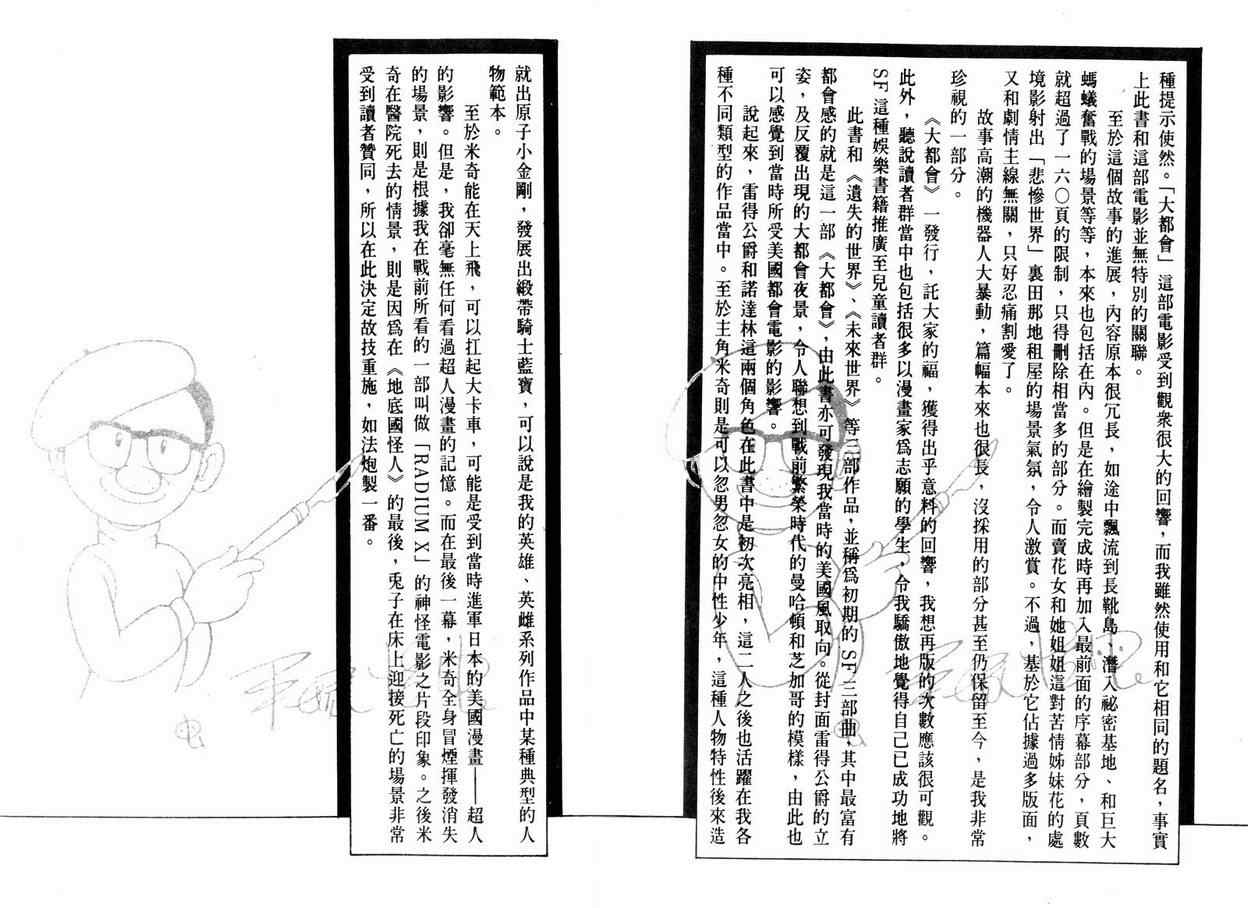 種提示使然。「大都會」這部電影受到觀衆很大的回響，而我雖然使用和它相同的題名，事實
上此書和這部電影並無特別的關聯。
至於這個故事的進展，內容原本很冗長，如途中飄流到長靴島，潛入祕密基地、和巨大
螞蟻奮戰的場景等等，本來也包括在內。但是在繪製完成時再加入最前面的序幕部分，頁數
就超過了一六〇頁的限制，只得刪除相當多的部分。而賣花女和她姐姐這對苦情姊妹花的處
境影射出「悲慘世界」裏田那地租屋的場景氣氛，令人激賞。不過，基於它佔據過多版面，
又和劇情主線無關，只好忍痛割愛了。
故事高潮的機器人大暴動，篇幅本來也很長，沒採用的部分甚至仍保留至今，是我非常
珍視的一部分。
《大都會》一發行，託大家的福，獲得出乎意料的回響，我想再版的次數應該很可觀。
此外，聽說讀者群當中也包括很多以漫畫家爲志願的學生，令我驕傲地覺得自己已成功地將
SF這種娛樂書籍推廣至兒童讀者群。
此書和《遺失的世界》、《未來世界》等三部作品，並稱爲初期的SF三部曲，其中最富有
都會感的就是這一部《大都會》，由此書亦可發現我當時的美國風取向。從封面雷得公爵的立
姿，及反覆出現的大都會夜景，令人聯想到戰前繁榮時代的曼哈頓和芝加哥的模樣，由此也
可以感覺到當時所受美國都會電影的影響。
說起來，雷得公爵和諾達林這兩個角色在此書中是初次亮相，這二人之後也活躍在我各
種不同類型的作品當中。至於主角米奇則是可以忽男忽女的中性少年，這種人物特性後來造
就出原子小金剛，發展出緞帶騎士藍寶，可以說是我的英雄、英雌系列作品中某種典型的人
物範本。
至於米奇能在天上飛，可以扛起大卡車，可能是受到當時進軍日本的美國漫畫——超人
的影響。但是，我卻毫無任何看過超人漫畫的記憶。而在最後一幕，米奇全身冒煙揮發消失
的場景，則是根據我在戰前所看的一部叫做「RADIUM X」的神怪電影之片段印象。之後米
奇在醫院死去的情景，則是因爲在《地底國怪人》的最後，兎子在床上迎接死亡的場景非常
受到讀者贊同，所以在此決定故技重施，如法炮製一番。